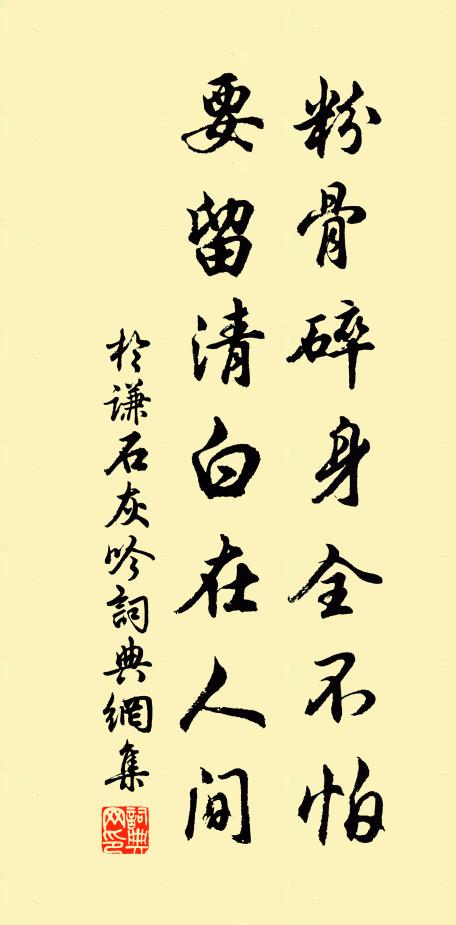 粉骨碎身全不怕
要留清白在人间
於谦石灰吟詞典網集
詞典
网印